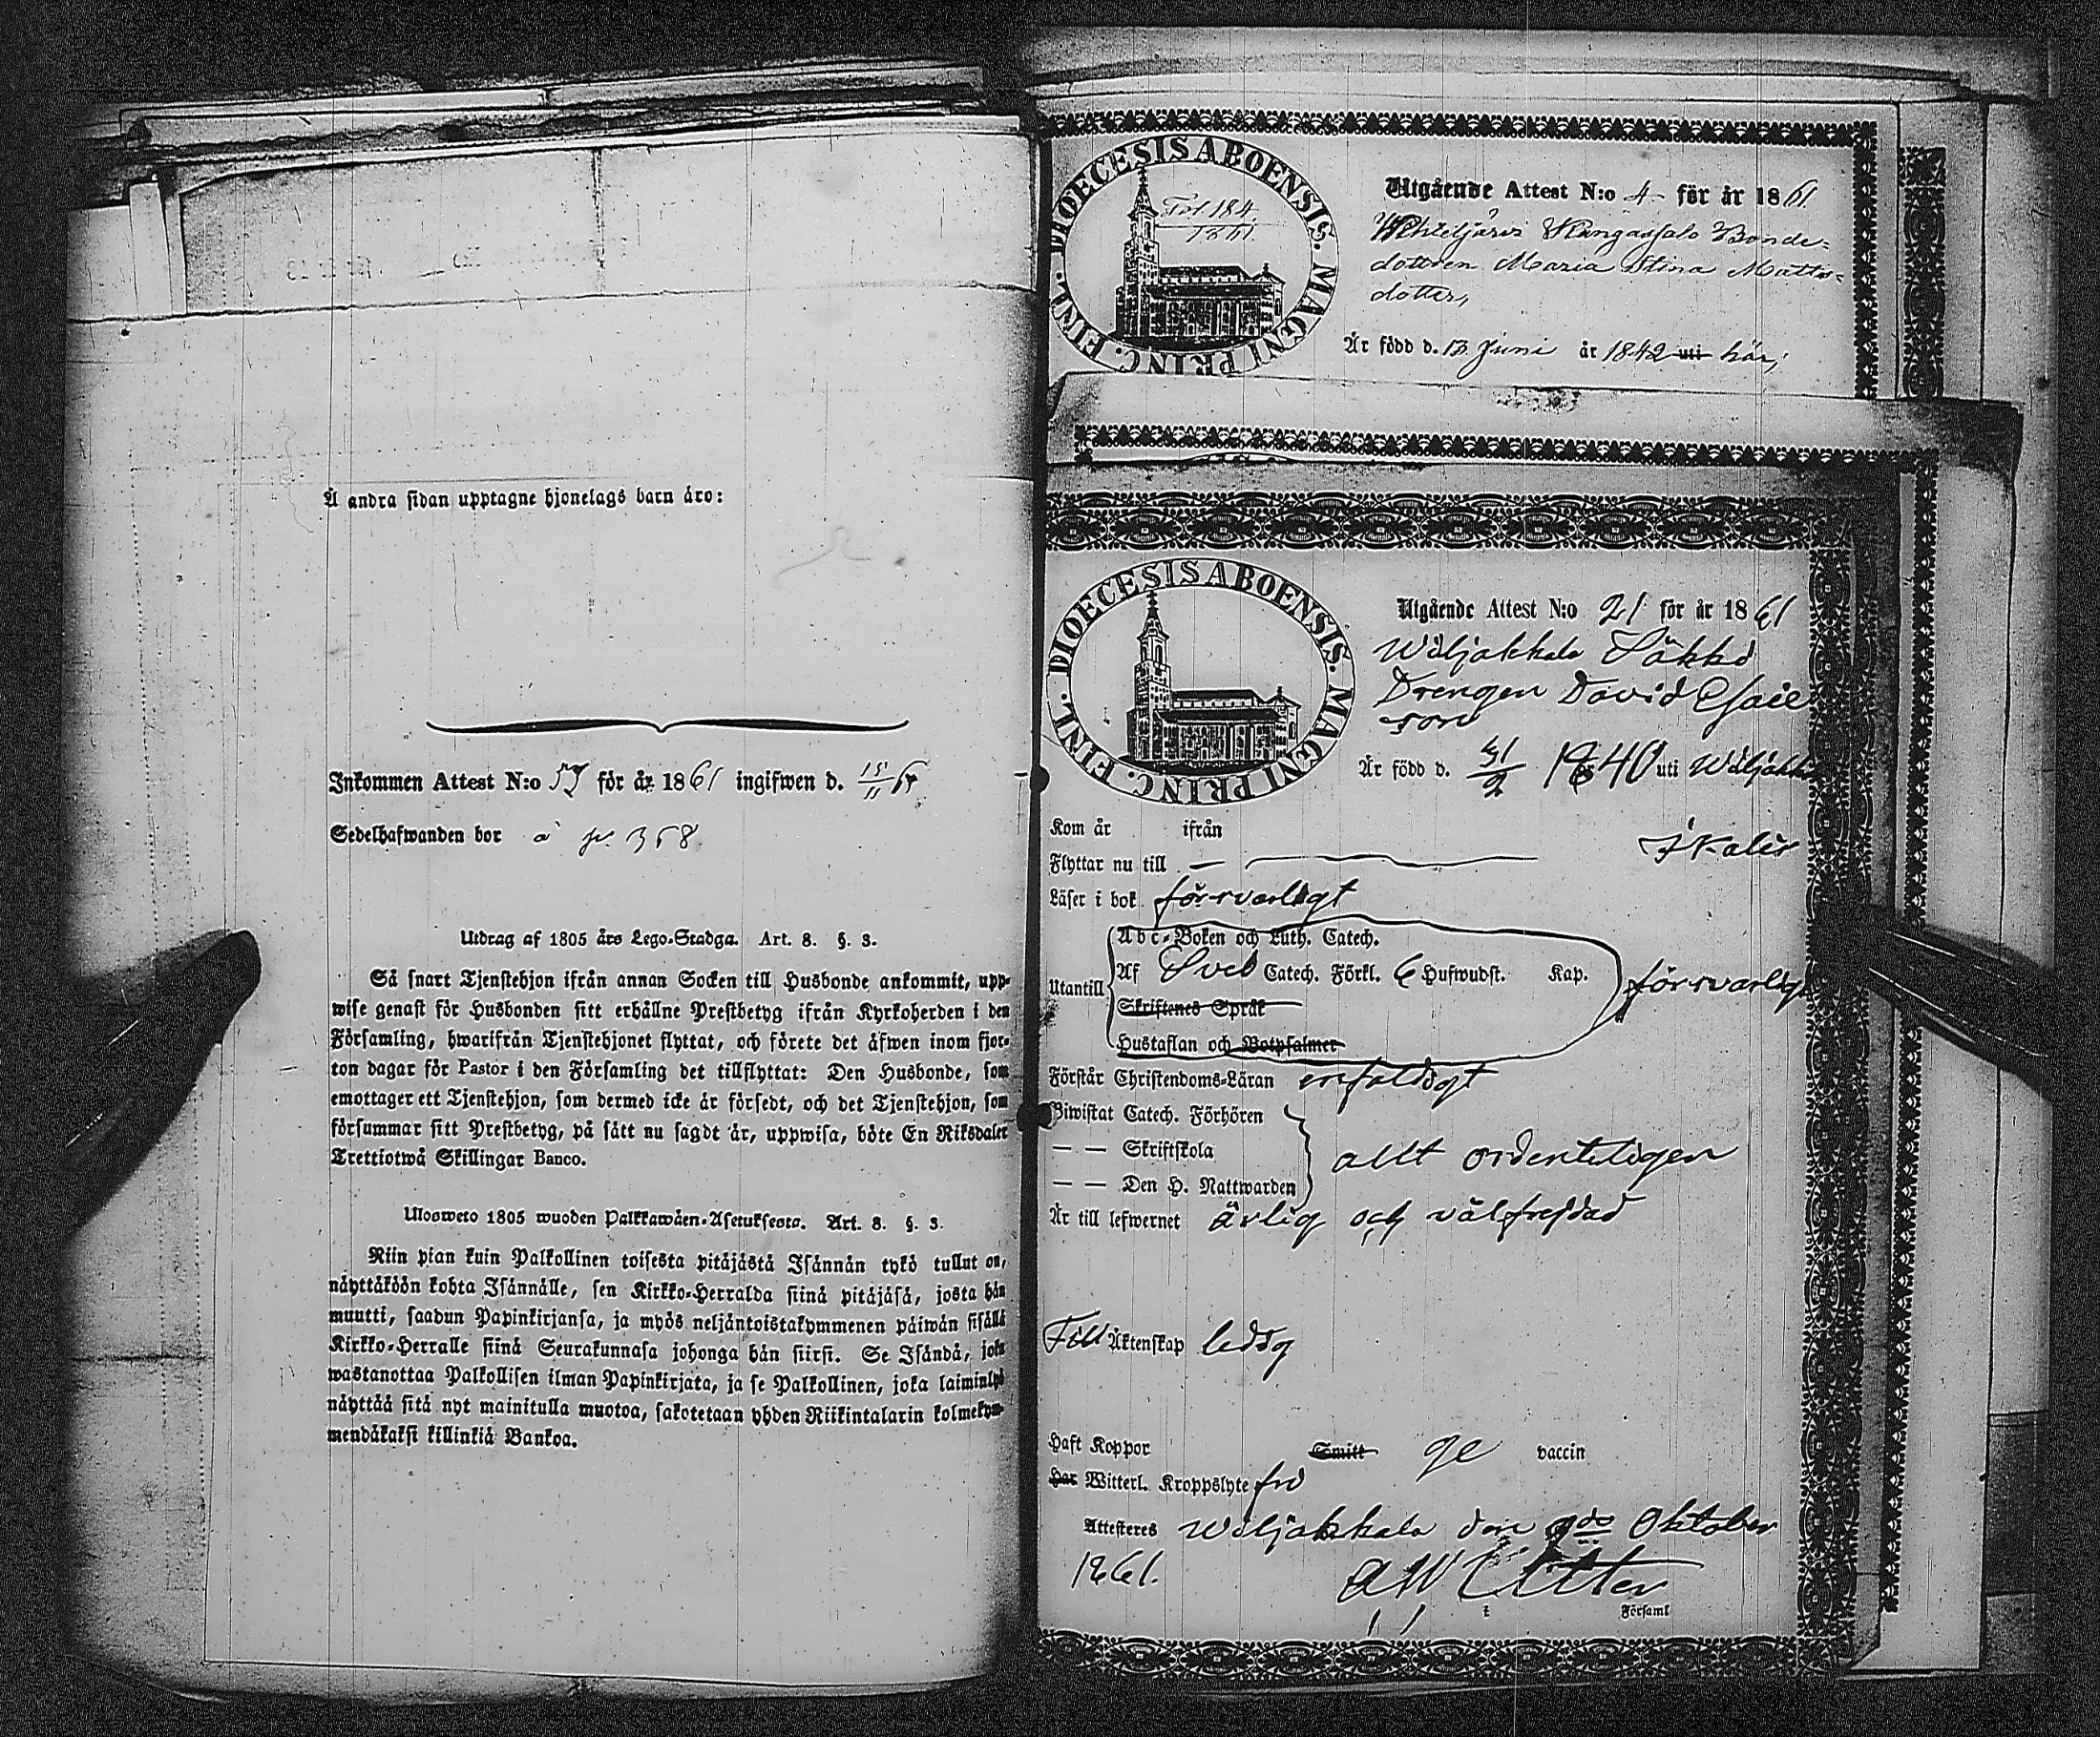 Å andra sidan upptagne hjonelags barn äro:
Inkommen Attest N:o 57 för år 1861 ingifwen d. 15/11 61
Sedelhafwanden bor à p. 358
Utdrag af 1805 års Lego-Stadga. Art. 8. §. 3.
Så snart Tjenstehjon ifrån annan Socken till Husbonde ankommit, upp-
wise genast för Husbonden sitt erhållne Prestbetyg ifrån Kyrkoherden i den
Församling, hwarifrån Tjenstehjonet flyttat, och förete det äfwen inom fjor-
ton dagar för Pastor i den Församling det tillflyttat: Den Husbonde, som
emottager ett Tjenstehjon, som dermed icke är försedt, och det Tjenstehjon, som
försummar sitt Prestbetyg, på sätt nu sagdt är, uppwisa, böte En Riksdaler
Trettiotwå Skillingar Banco.
Ulosweto 1805 wuoden Palkkawäen-Asetuksesta. Art. 8. §. 3.
Niin pian kuin Palkollinen toisesta pitäjästä Isännän tykö tullut on,
näyttäköön kohta Isännälle, sen Kirkko-Herralda siinä pitäjäsä, josta hän
muutti, saadun Papinkirjansa, ja myös neljäntoistakymmenen päiwän sisällä
Kirkko-Herralle siinä Seurakunnasa johonga hän siirsi. Se Isändä, joka
wastanottaa Palkollisen ilman Papinkirjata, ja se Palkollinen, joka laiminlyö
näyttää sitä nyt mainitulla muotoa, sakotetaan yhden Riikintalarin kolmekym-
mendäkaksi killinkiä Bankoa.
DIOECESIS ABOENSIS. MAGNI PRINC. FINL.
Fol 184.
1861.
Utgående Attest N:o 4 för år 1861
Kangassalo Bonde-
dottren Maria Stina Matts-
dotter,
Är född d. 13 Juni år 1842 uti här,
DIOECESIS ABOENSIS. MAGNI PRINC. FINL.
Utgående Attest N:o 21 för år 1861
Wiljakkala
Drengen David Esaie
son
Är född d. 1840 uti Wiljakk
Kom år ifrån
Flyttar nu till — Ikalis
Läser i bok försvarligt
Abc-Boken och Luth. Catech.
Utantill Af Sveb Catech. Förkl. 6 Hufwudst. Kap. försvarligt
Skriftenes Språk
Hustaflan och Botpsalmer
Förstår Christendoms-Läran enfaldigt
Biwistat Catech. Förhören
— — Skriftskola allt ordenteligen
— — Den H. Nattwarden
Är till lefwernet ärlig och välfrejdad
Till Äktenskap ledig
Haft Koppor Smitt ge vaccin
Har Witterl. Kroppslyte fri
Attesteres Wiljakkala den 9de Oktober
1861.
i Församl